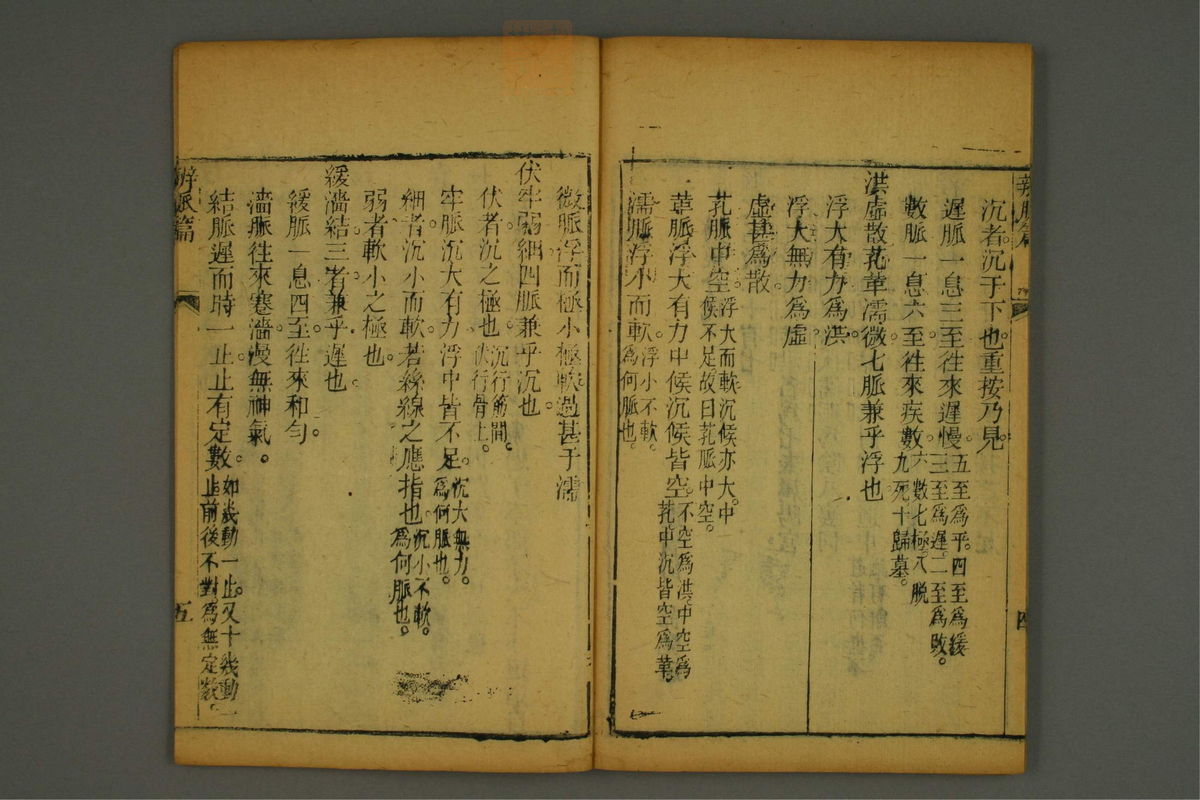 辨脈篇
四
沉者沉于下也。重按乃見。
遲脈一息三至往來遲慢。五至爲平。四至爲緩三至爲遲。二至爲敗。
數脈一息六至往來疾數。六數七極。八脫九死十歸墓。
洪虛散芤革濡微七脈兼乎浮也
浮大有力爲洪。
浮大無力爲虛
虛甚爲散。
芤脈中空。浮大而軟沉候亦大。中候不足故曰芤脈中空。
革脈浮大有力中候沉候皆空。不空爲洪。中空爲芤。中沉皆空爲革。
濡脈浮小而軟。浮小不軟。爲何脈也。
微脈浮而極小極軟過甚于濡
伏牢弱細四脈兼乎沉也。
伏者沉之極也。沉行筋間。伏行骨上。
牢脈沉大有力浮中皆不足。沉大無力。爲何脈也。
細者沉小而軟。若絲線之應指也。沉小不軟。爲何脈也。
弱者軟小之極也。
緩濇結三者兼乎遲也
緩脈一息四至。往來和勻。
濇脈往來蹇濇。慢無神氣。
結脈遲而時一止。止有定數。如幾動一止。又十幾動一止。前後不對。爲無定數。
辨脈篇
五